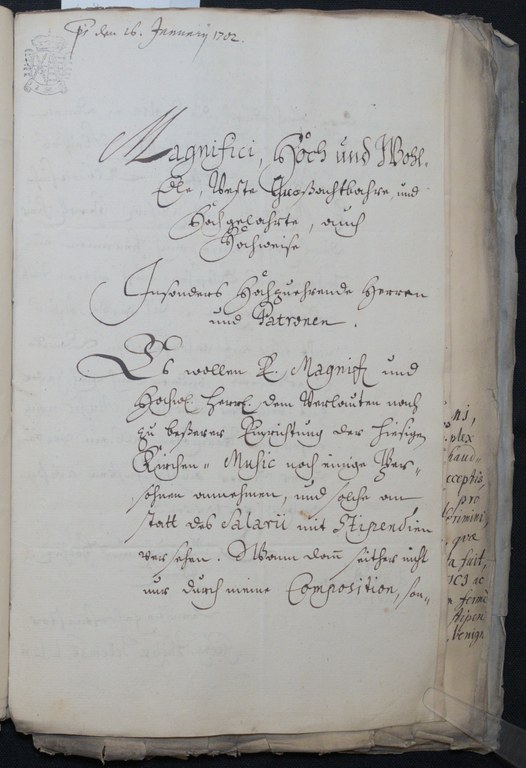 ps den 26. January 1702.
Magnifici, Hoch und Wohl-
Edle, Veste Großachtbahre, und
Hochgelahrte, auch
Hochweise
Insonders Hochzuehrende Herren
und Patronen.
Es wollen E. Magnif. und
Hochw. Herrl. dem Verlauten nach
zu beßerer Einrichtung der hiesigen
Kirchen-Music noch einige Per-
sohnen annehmen, und solche an-
statt des Salarii mit Stipendien
versehen. Wann dann seither nicht
nur durch meine Composition, son-
plex
hand-
eccepti
pro
crimini
qve
a fuit,
ferme
stipen
benigne